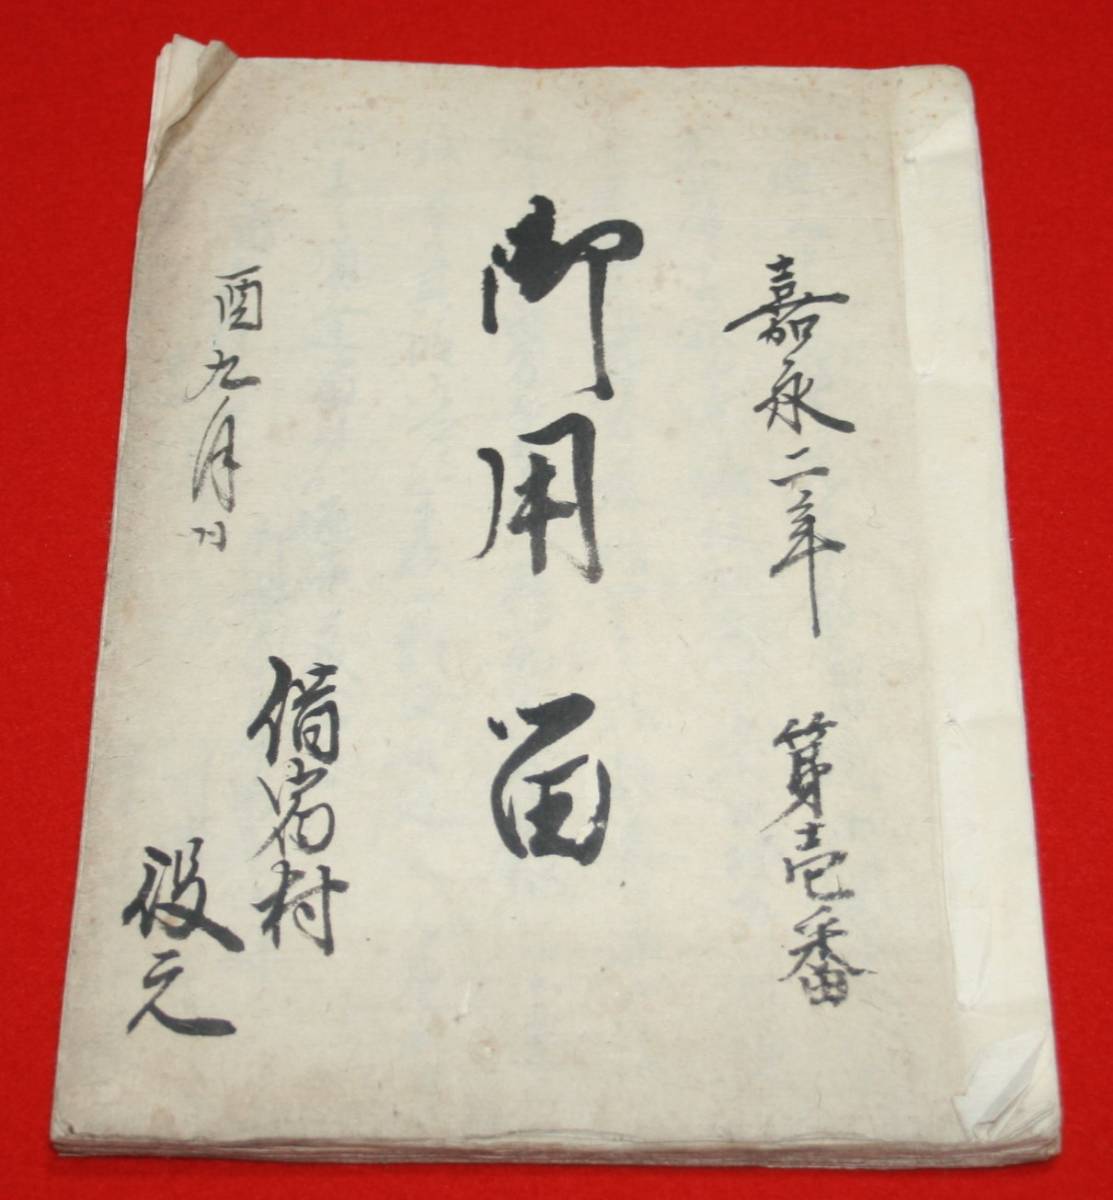 嘉永二年 第壱番
御用留
酉九月日
借宿村
役元